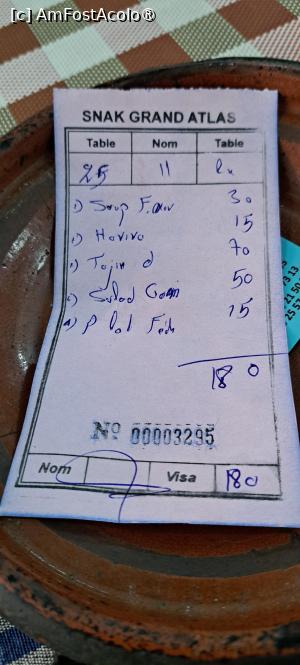 [c] AmFostAcolo®
SNAK GRAND ATLAS
Table Nom Table
25 11
1) Soup 30
1) Harira 15
1) Tajin d 70
1) Salad 50
1) P 15
180
Nº 00003295
Nom Visa 180